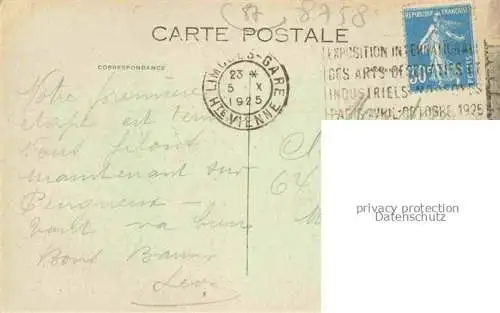 87 8758
CARTE POSTALE
CORRESPONDANCE
REPUBLIQUE FRANCAISE
LIMOGES-GARE
23 *
5 X
1925
Hte VIENNE
EXPOSITION INTERNATIONALE
DES ARTS DECORATIFS
INDUSTRIELS MODERNES
PARIS AVRIL-OCTOBRE 1925
Notre première
étape est
Nous filons
maintenant sur
Perigueux
tout va bien
Bons Baisers
Leon
64
privacy protection
Datenschutz